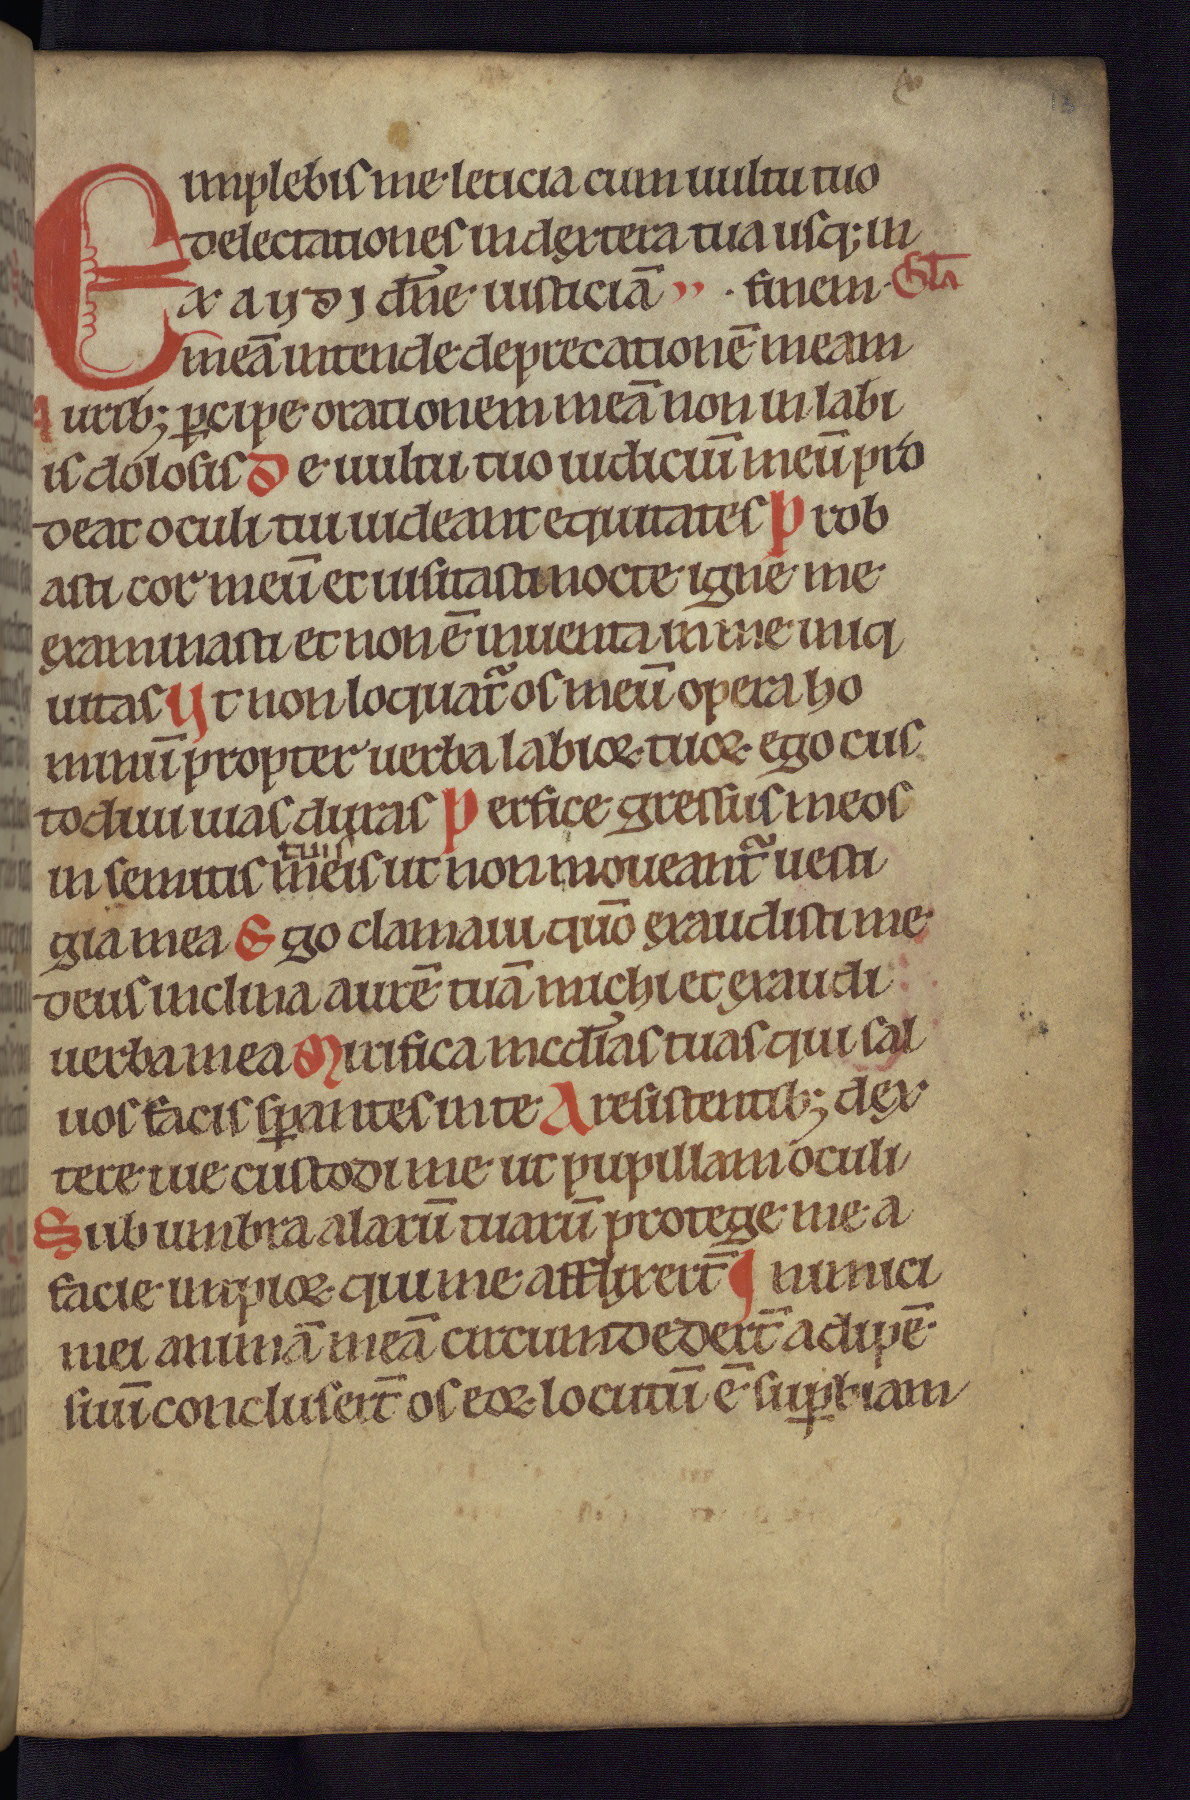 implebis me leticia cum uultu tuo
delectationes in dextera tua usq; in
finem. Gła
Exaudi dn̄e iusticiā
meā intende deprecationē meam
Aurib; ꝑcipe orationem meā non in labi
is dolosis De uultu tuo iudiciū meū pro
deat oculi tui uideant equitates Prob
asti cor meū et uisitasti nocte igne me
examinasti et non ē inuenta in me iniq
uitas Vt non loquat᷑ os meū opera ho
minū propter uerba labioꝝ tuoꝝ ego cus
todiui uias duras Perfice gressus meos
tuis
in semitis meis ut non moueant᷑ uesti
gia mea Ego clamaui qūo exaudisti me
deus inclina aurē tuā michi et exaudi
uerba mea Mirifica mcdīas tuas qui sal
uos facis sꝑantes in te A resistentib; dex
tere tue custodi me ut pupillam oculi
Sub umbra alarū tuarū protege me a
facie impioꝝ qui me afflixert̄ Inimici
mei animā meā circumdedert̄ adipē
suū conclusert̄ os eoꝝ locutū ē suꝑbiam